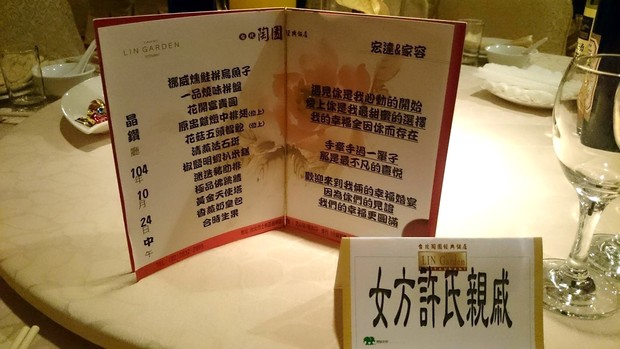 LIN GARDEN
晶鑽廳 104年10月24日中午
挪威燻鮭拼烏魚子
一品燒味拼盤
花開富貴圓
原盅雞燉中排翅(位上)
花菇五頭鮑(位上)
清蒸活石斑
椒鹽明蝦扒米糕
極品佛跳牆
黃金天使塔
香菇奶皇包
合時生果
香格 陶園 經典飯店
宏達&家容
遇見你是我心動的開始
愛上你是我最甜蜜的選擇
我的幸福全因你而存在
手牽手過一輩子
那是最不凡的喜悅
歡迎來到我倆的幸福婚宴
因為你們的見證
我們的幸福更圓滿
香格陶園經典飯店
LIN Garden
女方許氏親戚